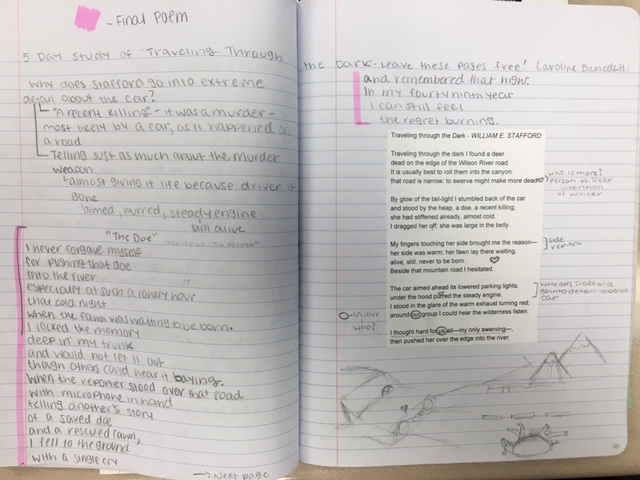 - Final Poem
5 Day study of "Traveling Through
Why does Stafford go into extreme
detail about the car?
"A recent killing" - it was a murder -
most likely by a car, as it happened on
a road
Telling just as much about the murder
weapon
almost giving it life because driver it
gone
"aimed, purred, steady engine
still alive
"The Doe"
I never forgave myself
for pushing that doe
into the river
especially at such a lonely hour
that cold night
when the fawn was waiting to be born.
I locked the memory
deep in my trunk
and would not let it out
though others could hear it baying.
When the reporter stood over that road
with microphone in hand
telling another's story
of a saved doe
and a rescued fawn,
I fell to the ground
with a single cry
→ Next page
the Dark - leave these pages free! Caroline Benedetti
and remembered that night.
In my fourty ninth year
I can still feel
the regret burning.
Traveling through the Dark - WILLIAM E. STAFFORD
Traveling through the dark I found a deer
dead on the edge of the Wilson River road.
It is usually best to roll them into the canyon:
that road is narrow; to swerve might make more dead.
who is more?
Person vs. Deer
intention
of writer
By glow of the tail-light I stumbled back of the car
and stood by the heap, a doe, a recent killing;
she had stiffened already, almost cold.
I dragged her off; she was large in the belly.
My fingers touching her side brought me the reason—
her side was warm; her fawn lay there waiting,
alive, still, never to be born.
Beside that mountain road I hesitated.
side
repetition
The car aimed ahead its lowered parking lights;
under the hood purred the steady engine.
I stood in the glare of the warm exhaust turning red;
around our group I could hear the wilderness listen.
why does Stafford
go into detail about
car
O-us, our
↓
who?
I thought hard for us all—my only swerving—,
then pushed her over the edge into the river.